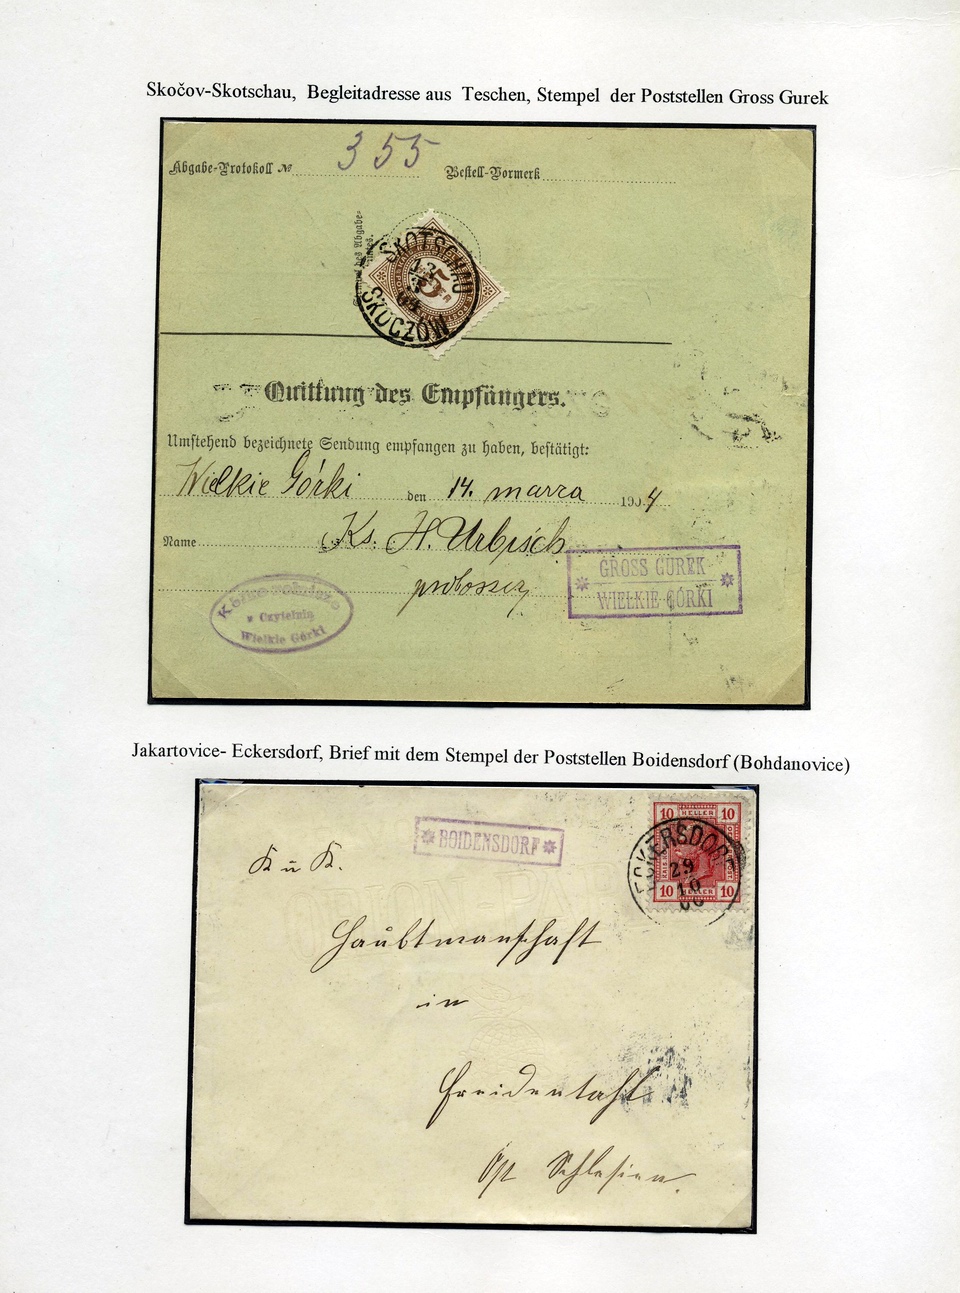 Skočov-Skotschau, Begleitadresse aus Teschen, Stempel der Poststellen Gross Gurek
Abgabe-Protokoll № 355 Bestell-Vormerk
SKOTSCHAU
SKOCZÓW
5
Quittung des Empfängers.
Umstehend bezeichnete Sendung empfangen zu haben, bestätigt:
Wielkie Górki den 14. marca 1904
Name Ks. H. Urbisch
proboszcz
GROSS GUREK
WIELKIE GÓRKI
z Czytelnią
Wielkie Górki
Jakartovice- Eckersdorf, Brief mit dem Stempel der Poststellen Boidensdorf (Bohdanovice)
BOIDENSDORF
10 HELLER 10
ECKERSDORF
29
10
10 HELLER 10
K u K.
Haubtmanschaft
in
Freidentahl
Öst Schlesien.